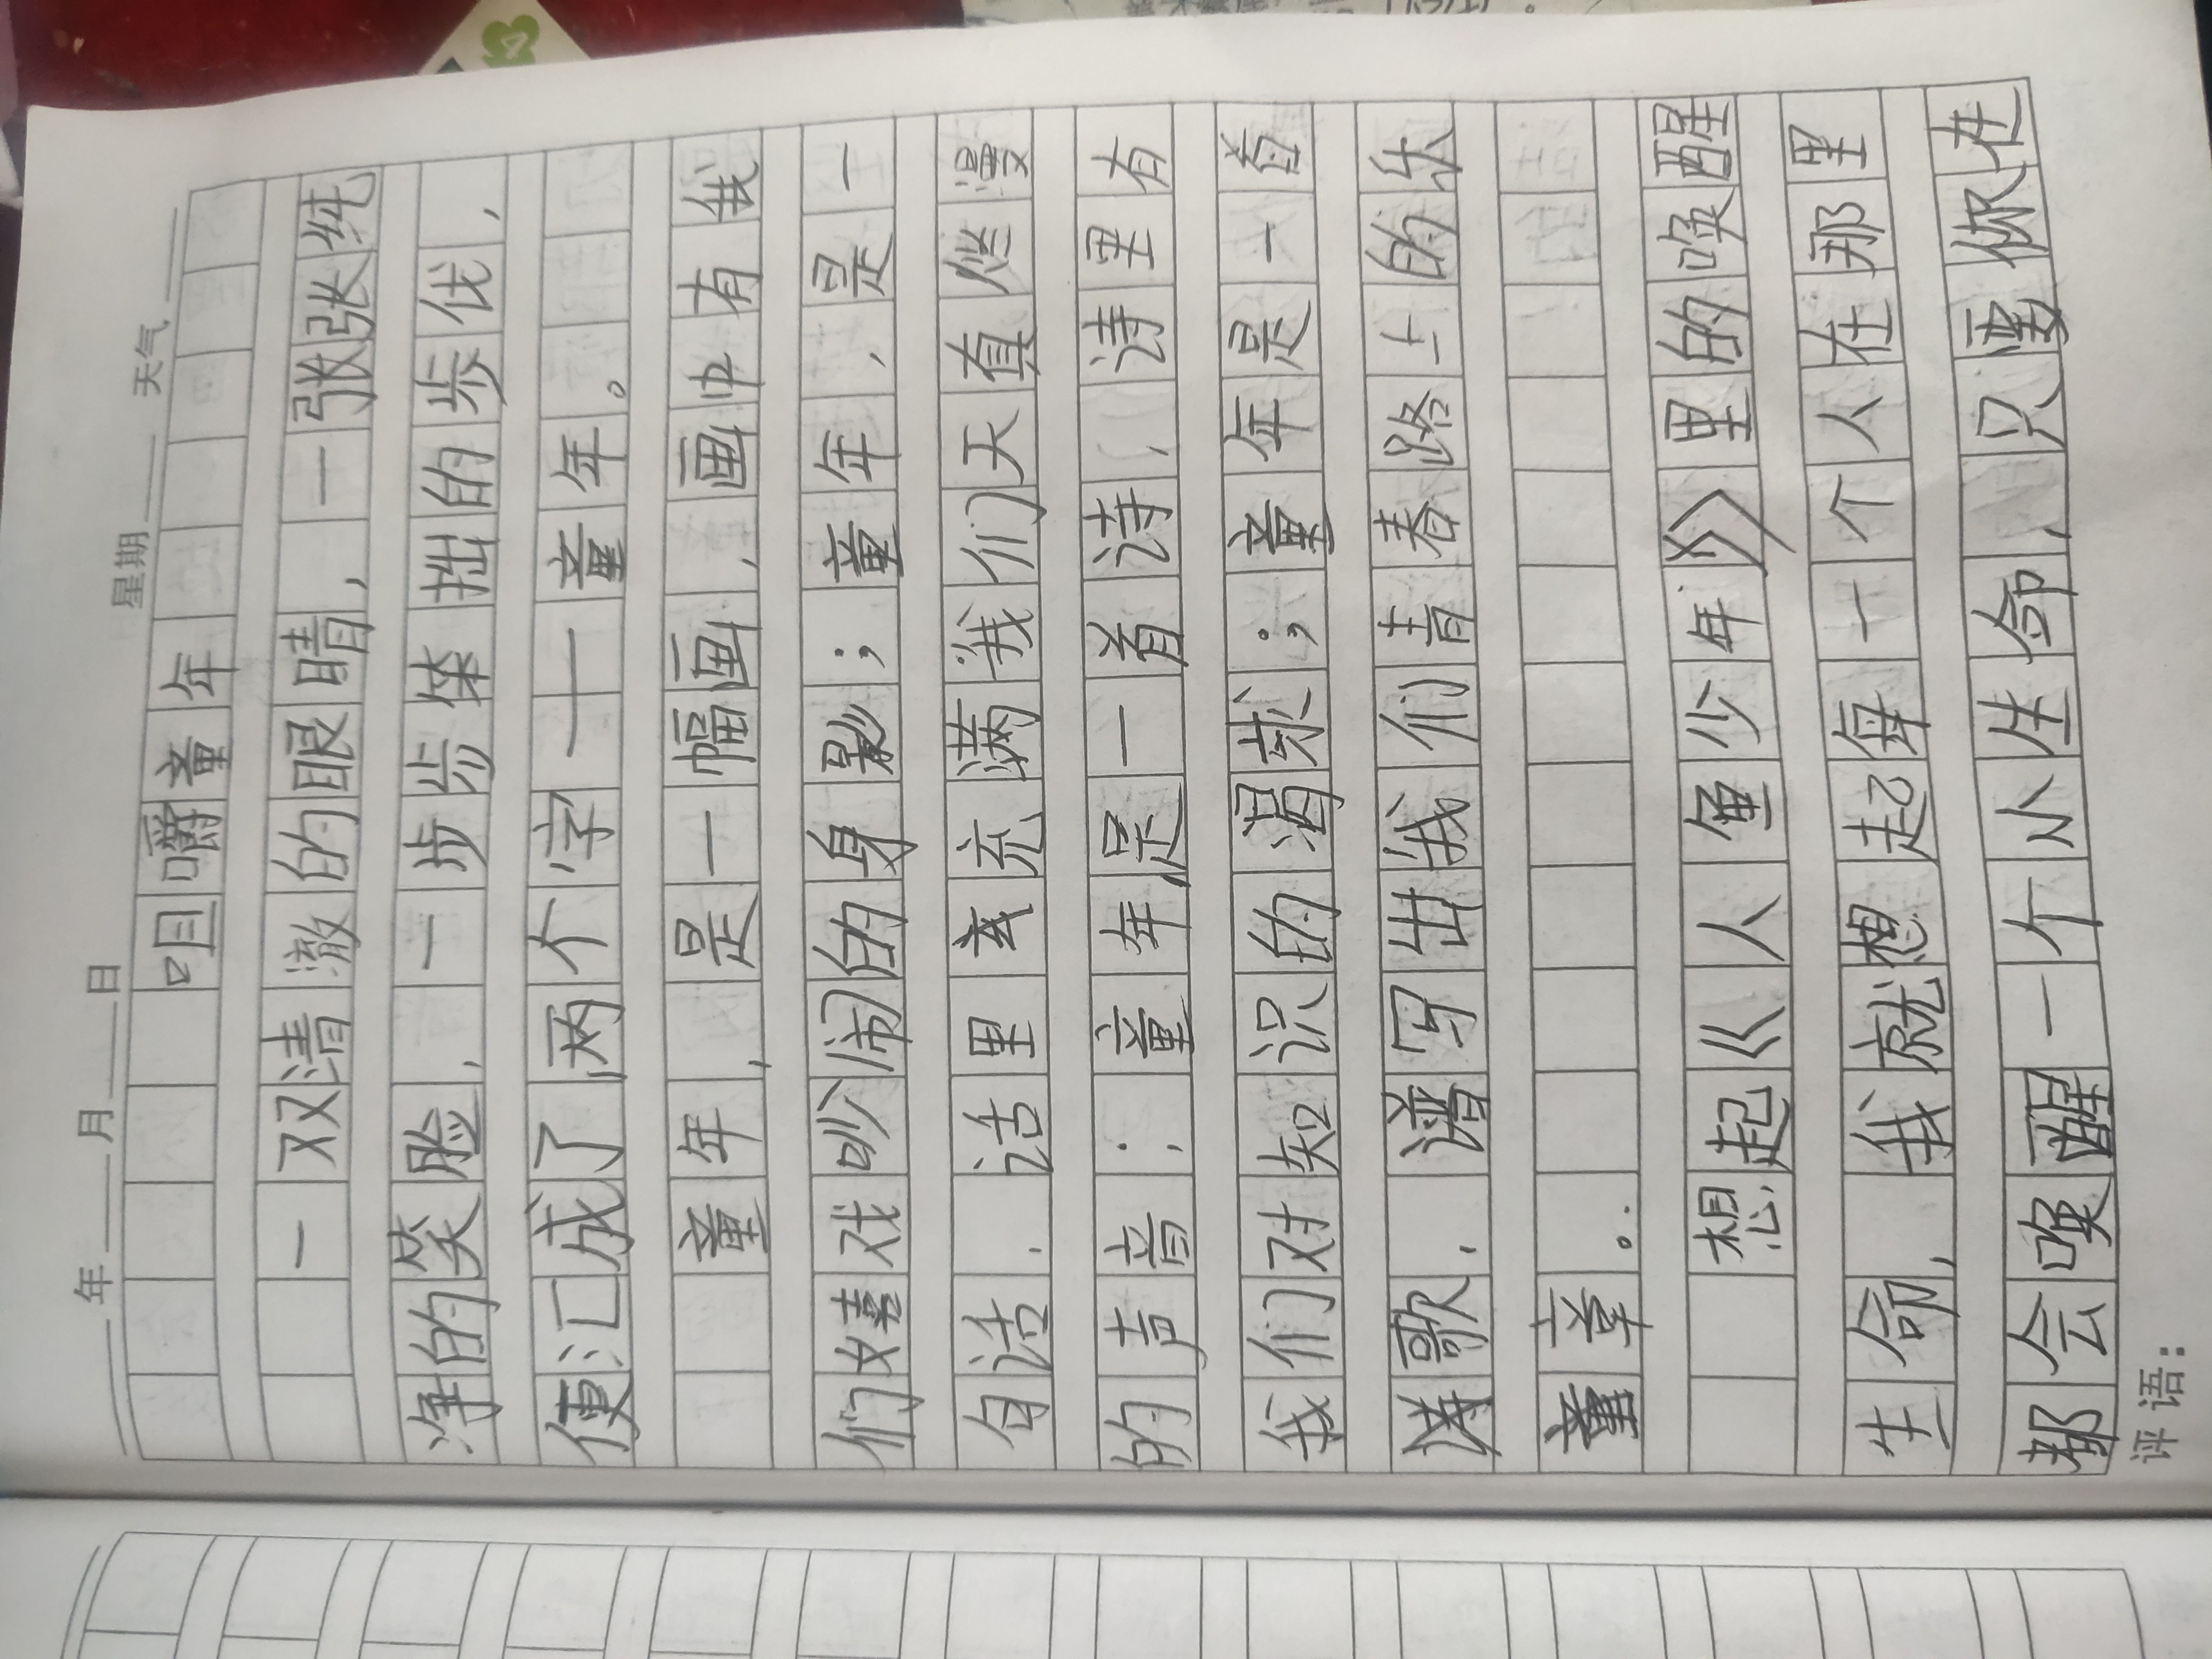 年 月 日 星期 天气
咀嚼童年
一双清澈的眼睛，一张张纯
净的笑脸，一步步笨拙的步伐，
便汇成了两个字——童年。
童年，是一幅画，画中有我
们嬉戏吵闹的身影；童年，是一
句话，话里充满我们天真烂漫
的声音；童年是一首诗，诗里有
我们对知识的渴求；童年是一首
赞歌，谱写出我们青春路上的乐
章。
想起《人鱼少年》里的唤醒
生命，我就想起每一个人在那里
都会唤醒一个小生命，只要你在
评语：